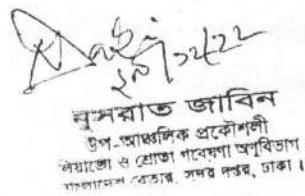 নুসরাত জাবিন
উপ-আঞ্চলিক প্রকৌশলী
লিয়াজো ও শ্রোতা গবেষণা অণুবিভাগ
বাংলাদেশ বেতার, সদর দপ্তর, ঢাকা।